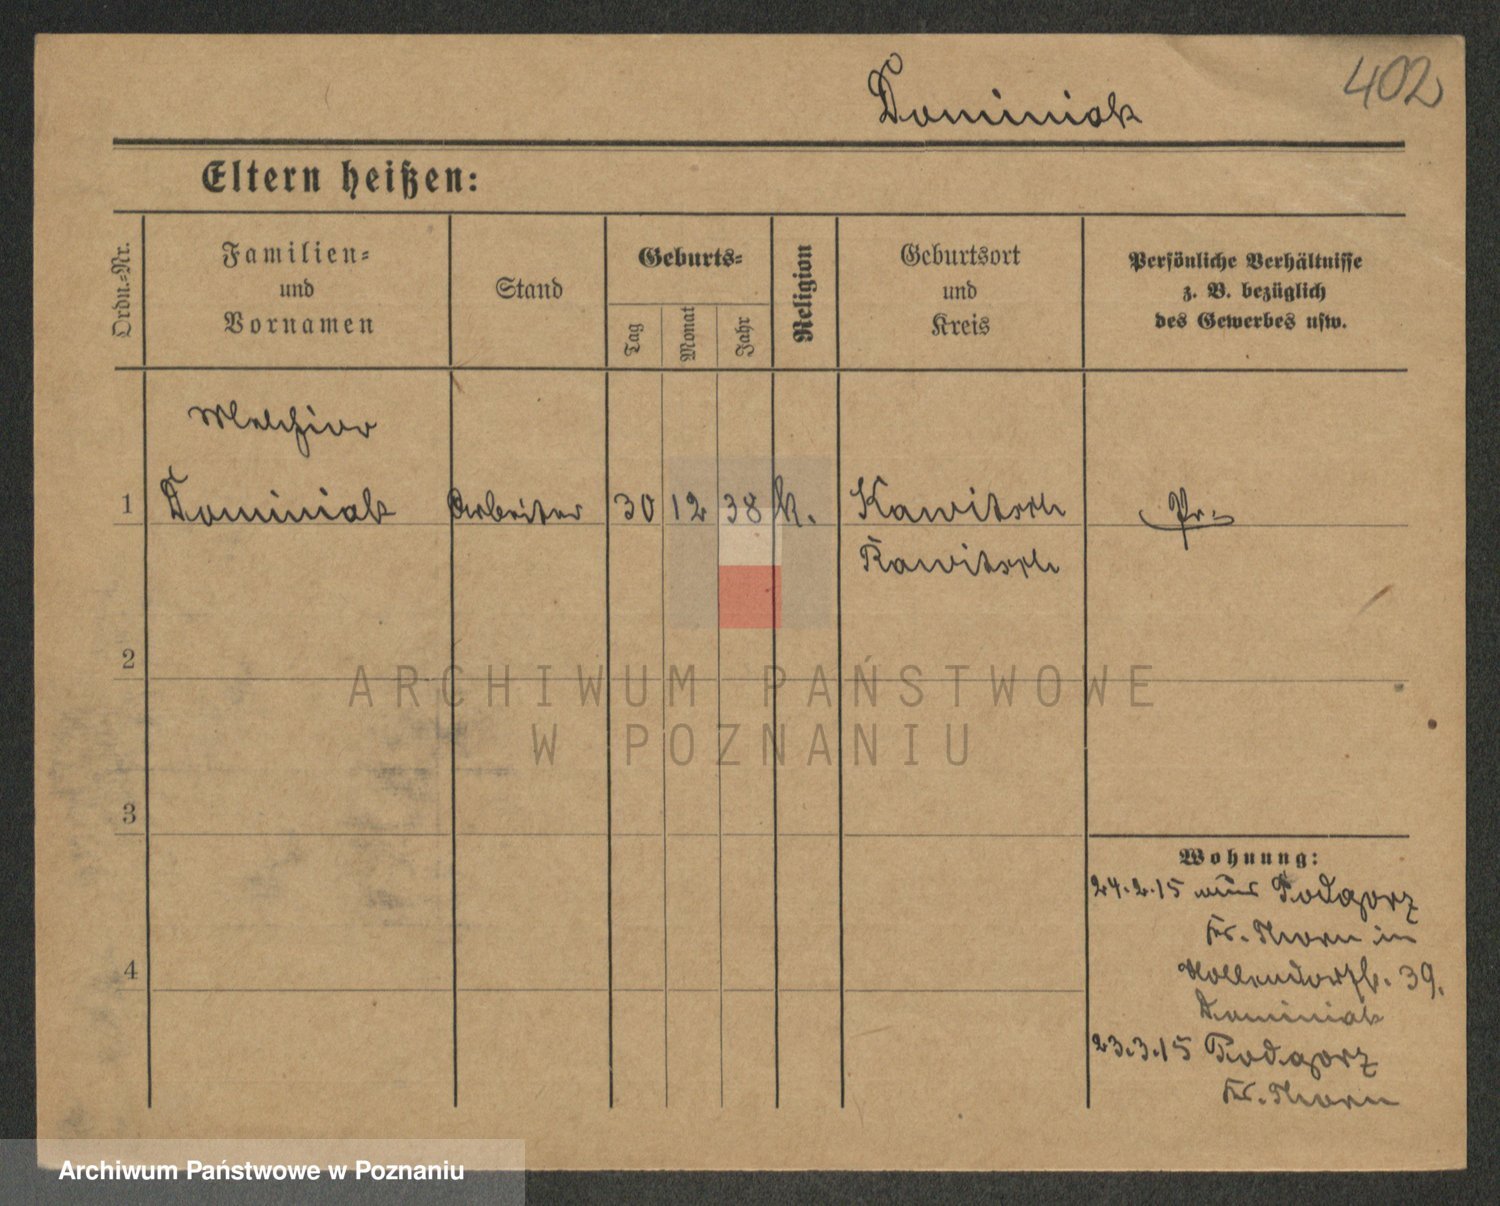 402
Dominiak
Eltern heißen:
Ordn.-Nr.
Familien-
und
Vornamen
Stand
Geburts-
Tag
Monat
Jahr
Religion
Geburtsort
und
Kreis
Persönliche Verhältnisse
z. B. bezüglich
des Gewerbes usw.
Melchior
1 Dominiak Arbeiter 30 12 38 k. Rawitsch Pr.
Rawitsch
2
3
4
Wohnung:
24.2.15 aus Podgorz
Kr. Thorn in
39.
Dominiak
23.3.15 Podgorz
Kr. Thorn
ARCHIWUM PAŃSTWOWE
W POZNANIU
Archiwum Państwowe w Poznaniu